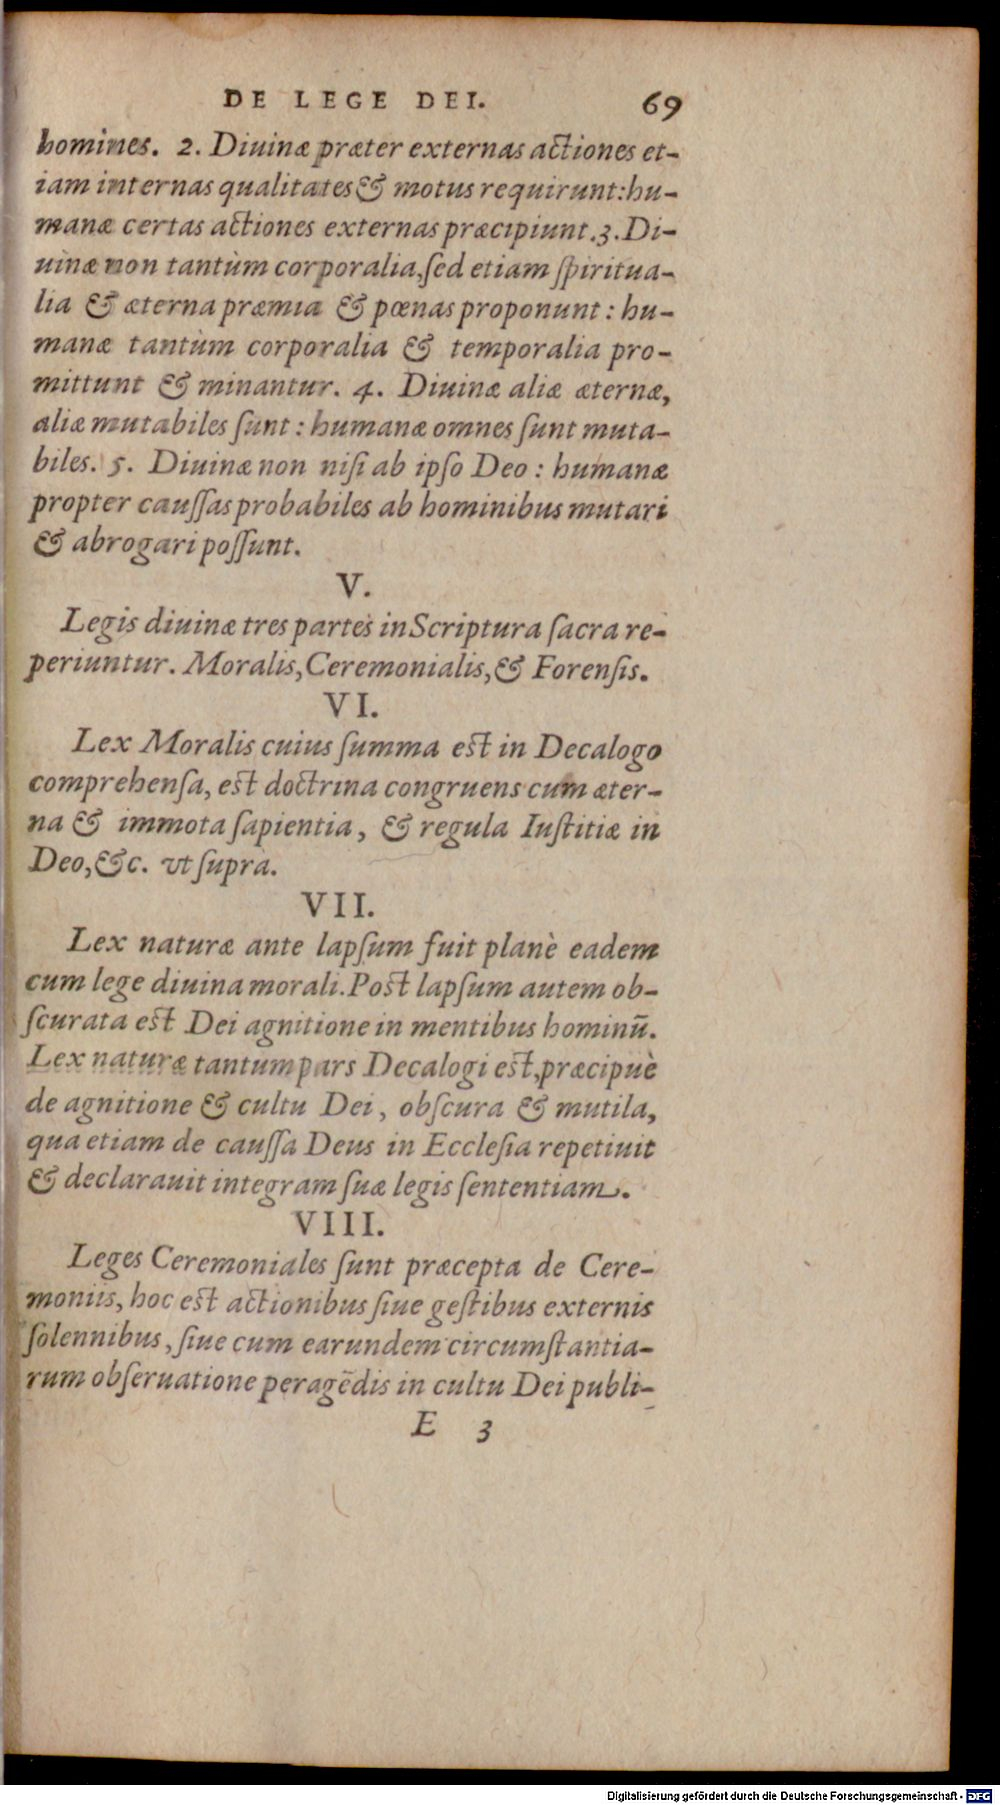 DE LEGE DEI. 69
homines. 2. Diuinæ præter externas actiones et-
iam internas qualitates & motus requirunt: hu-
manæ certas actiones externas præcipiunt. 3. Di-
uinæ non tantùm corporalia, ſed etiam ſpiritua-
lia & æterna præmia & pœnas proponunt: hu-
manæ tantùm corporalia & temporalia pro-
mittunt & minantur. 4. Diuinæ aliæ æternæ,
aliæ mutabiles ſunt: humanæ omnes ſunt muta-
biles. 5. Diuinæ non niſi ab ipſo Deo: humanæ
propter cauſſas probabiles ab hominibus mutari
& abrogari poſſunt.
V.
Legis diuinæ tres partes in Scriptura ſacra re-
periuntur. Moralis, Ceremonialis, & Forenſis.
VI.
Lex Moralis cuius ſumma eſt in Decalogo
comprehenſa, eſt doctrina congruens cum æter-
na & immota ſapientia, & regula Iuſtitiæ in
Deo, &c. vt ſuprà.
VII.
Lex naturæ ante lapſum fuit planè eadem
cum lege diuina morali. Poſt lapſum autem ob-
ſcurata eſt Dei agnitione in mentibus hominū.
Lex naturæ tantum pars Decalogi eſt, præcipuè
de agnitione & cultu Dei, obſcura & mutila,
qua etiam de cauſſa Deus in Eccleſia repetiuit
& declarauit integram ſuæ legis ſententiam.
VIII.
Leges Ceremoniales ſunt præcepta de Cere-
moniis, hoc eſt actionibus ſiue geſtibus externis
ſolennibus, ſiue cum earundem circumſtantia-
rum obſeruatione peragēdis in cultu Dei publi-
E 3
Digitalisierung gefördert durch die Deutsche Forschungsgemeinschaft - DFG